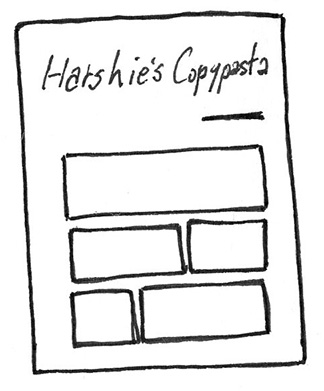 Harshie's Copypasta